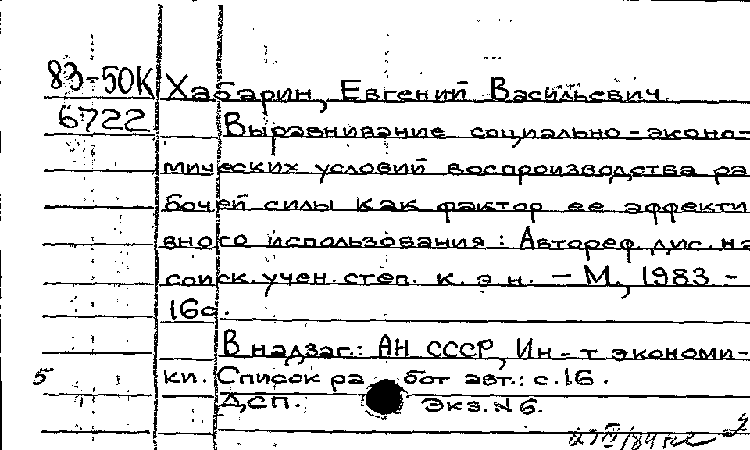 83-50К Хабарин, Евгений Васильевич
6722 Выравнивание социально-эконо-
мических условий воспроизводства ра
бочей силы как фактор ее эффекти
вного использования: Автореф. дис. на
соиск. учен. степ. к. э. н. – М., 1983 –
16с.
В надзаг.: АН СССР, Ин-т экономи-
5 ки. Список работ авт.: с. 16.
Д.сп. Экз. N 6.